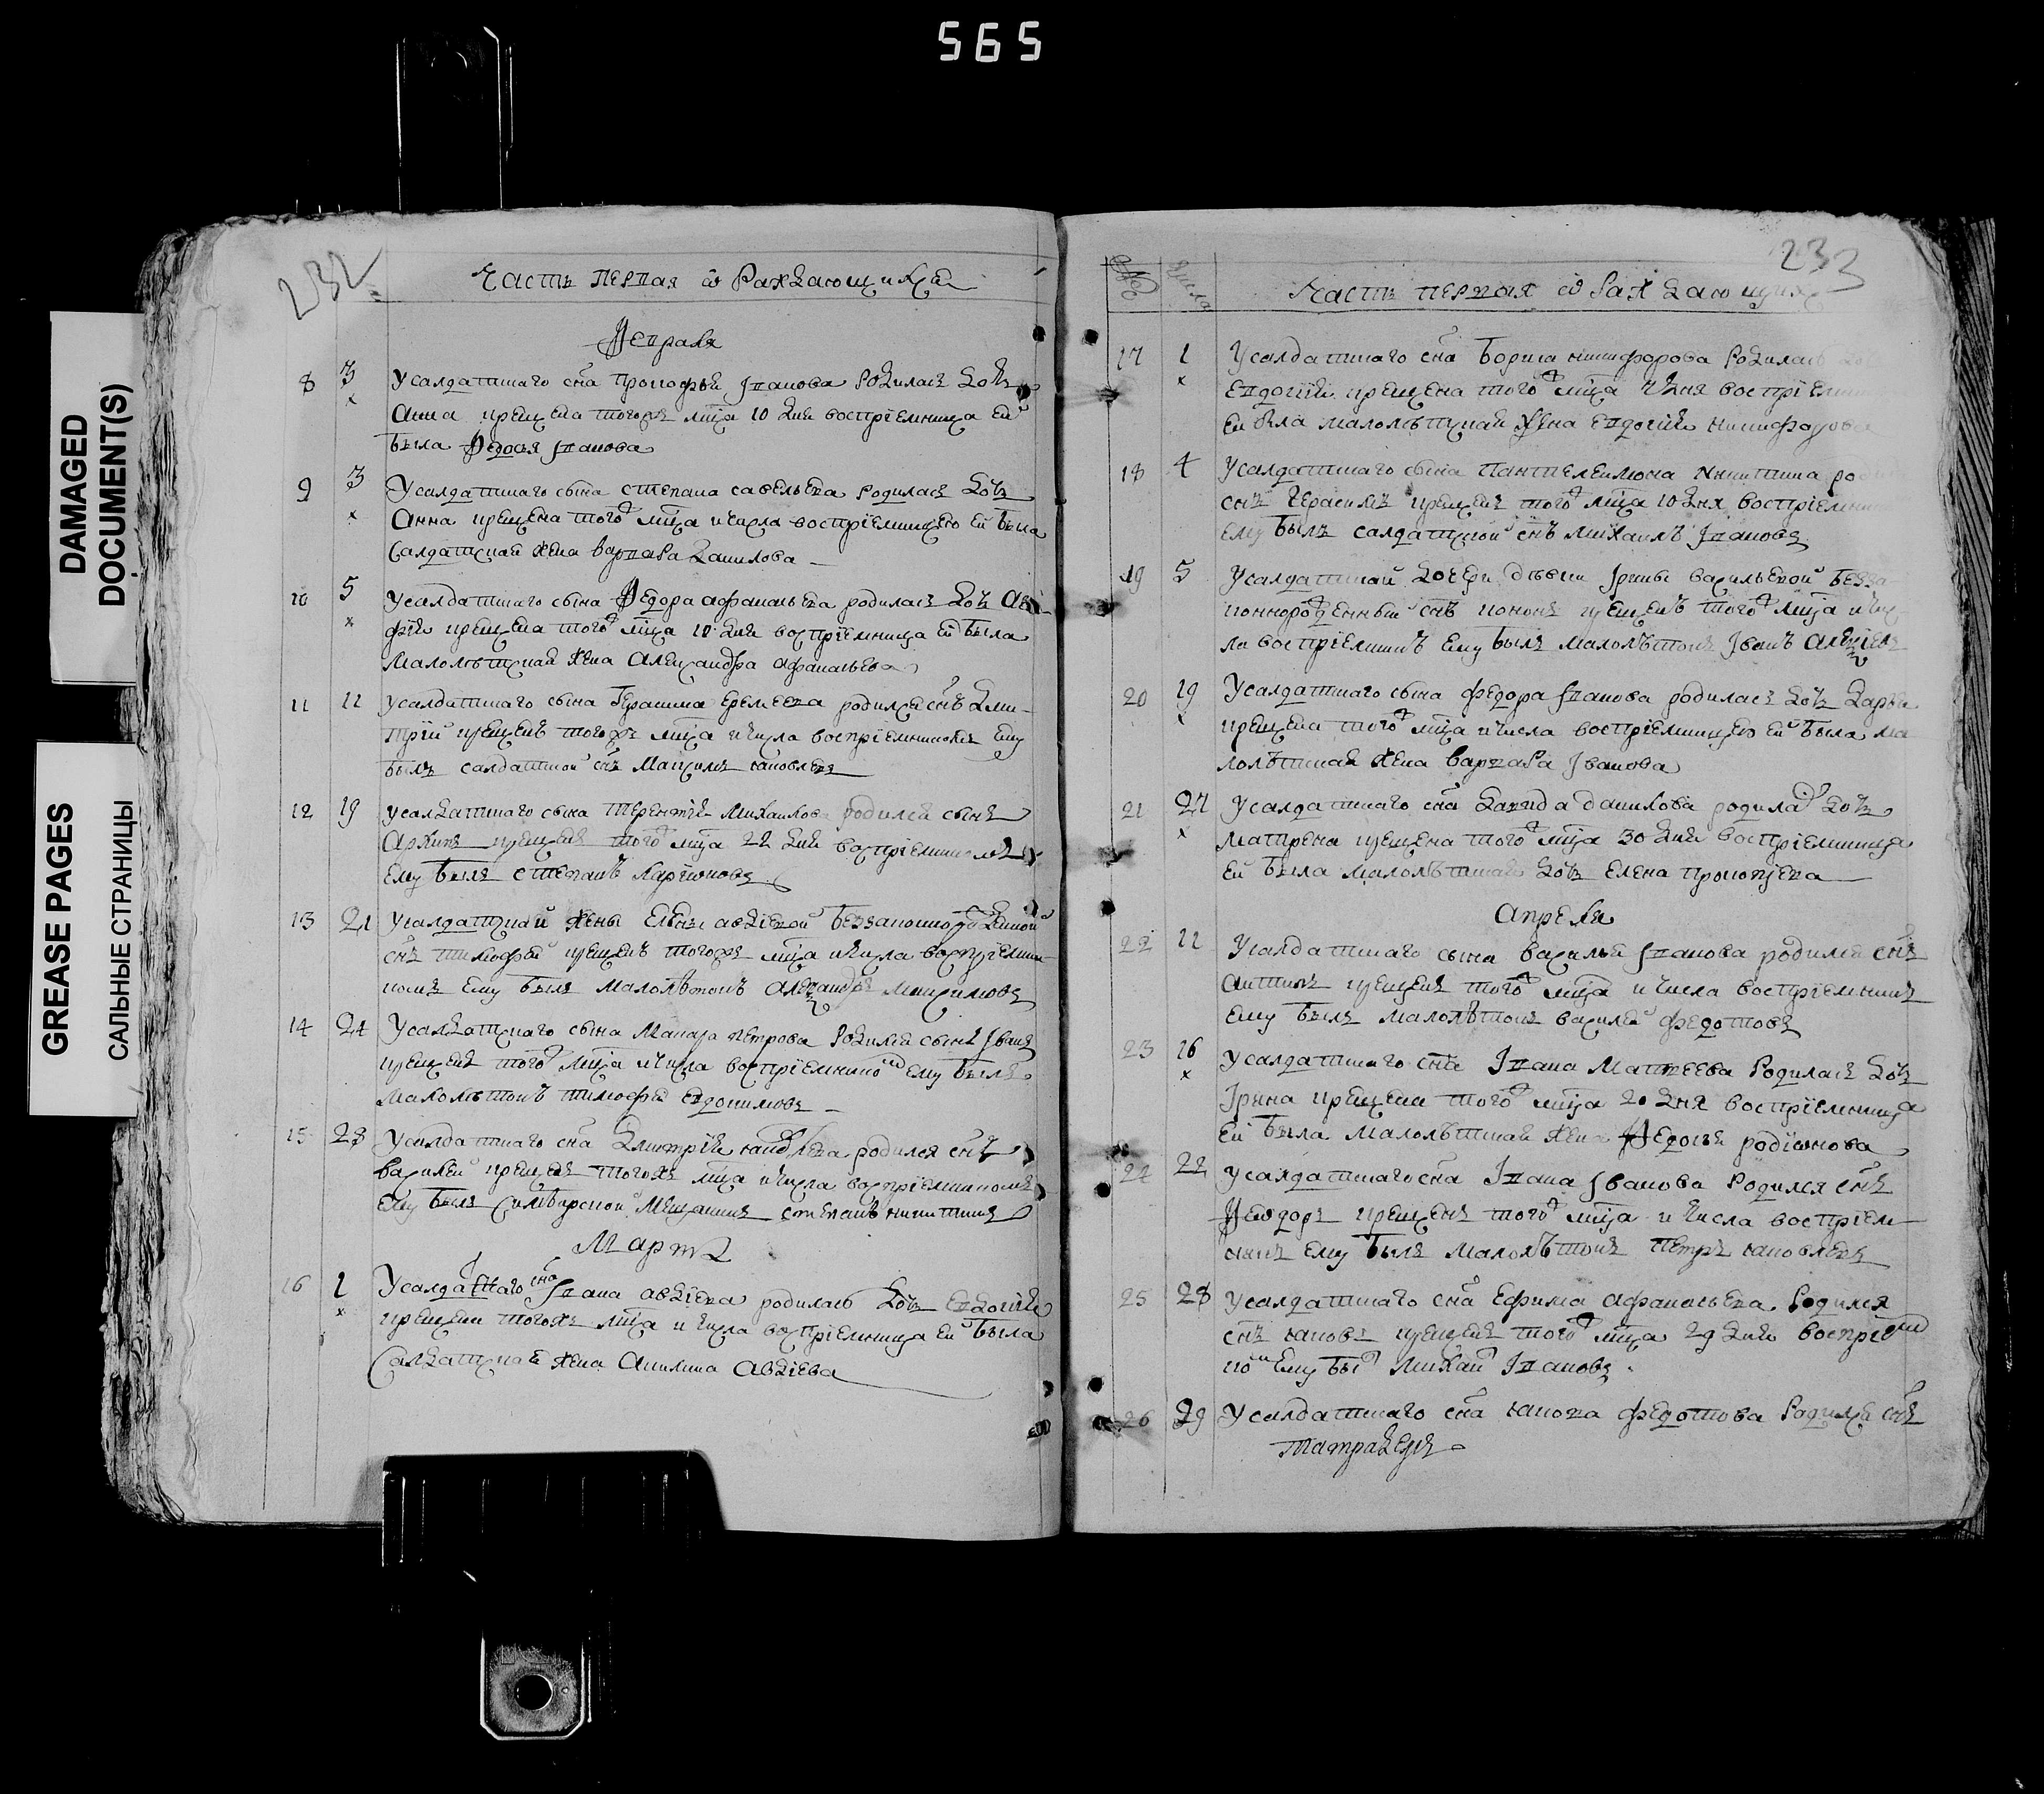 565
DAMAGED
DOCUMENT(S)
GREASE PAGES
САЛЬНЫЕ СТРАНИЦЫ
232
Часть первая о Раждающихся
Февраля
8 3 У салдатскаго сна Прокофья Иванова Родилась дочь
Анна крещена тогоже мца 10 дня восприемница ей
была Федосья Иванова
9 3 У салдатскаго сына Степана Савельева Родилась дочь
Анна крещена тогож мца и числа восприемницею ей была
Салдатская жена Варвара Данилова
10 5 У салдатскаго сына Федора Афанасьева родилась дочь Ага
фия крещена тогож мца 10 дня восприемница ей была
Малолетская жена Александра Афанасьева
11 11 У салдатскаго сына Герасима Еремеева родился снъ Дми
трий крещенъ тогожъ мца и числа восприемникомъ ему
былъ салдатской снъ Максимъ Яковлевъ
12 19 У салдатскаго сына Терентья Михаилова родился сынъ
Архипъ крещенъ тогож мца 22 дня восприемникомъ
Ему былъ Степанъ Ларионовъ
13 21 У салдатской жены Авдиевой беззаконнорожденной
снъ Тимофей крещенъ тогожъ мца и числа восприемни
комъ Ему былъ Малолетокъ Александръ Максимовъ
14 24 У салдатскаго сына Макара Петрова Родился сынъ Иванъ
крещенъ тогож мца и числа восприемнико ему былъ
Малолетокъ Тимофей Евдокимовъ
15 28 У салдатскаго сна Дмитрия Яковлева родился снъ
Василей крещенъ тогожъ мца и числа восприемникомъ
Ему былъ Симбирской Мещанинъ Степанъ Никитинъ
Мартъ
16 1 У салдатскаго сна Ивана Авдиева родилась дочь Евдокия
крещена тогожъ мца и числа восприемница ей была
Салдатская жена Акилина Авдиева
233
№ Числа
Часть первая о Раждающихся
17 1 У салдатскаго сна Бориса Никифорова Родилась
Евдокия крещена тогож мца дня восприемни
ей была малолетская жена Евдокия Никифорова
18 4 У салдатскаго сына Пантелеимона Никитина ро
снъ Герасимъ крещенъ тогож мца 10 дня восприемни
Ему былъ салдатской снъ Михаилъ Ивановъ
19 5 У салдатской дочери девки Ирины Васильевой безза
коннорожденный снъ Кононъ крещенъ тогож мца и чис
ла восприемникъ Ему былъ малолетокъ Иванъ
20 19 У салдатскаго сына Федора Иванова родилась дочь Дарья
крещена тогож мца и числа восприемницею ей была ма
лолетская жена Варвара Иванова
21 27 У салдатскаго сна Давида Данилова родила дочь
Матрена крещена тогож мца 30 дня восприемница
ей была малолетская дочь Елена Прокопиева
Апреля
22 11 У салдатскаго сына Василья Иванова родился снъ
Антипъ крещенъ тогож мца и числа восприемникъ
Ему былъ малолетокъ Василей Федотовъ
23 16 У салдатскаго сна Ивана Матвеева Родилась дочь
Ирина крещена тогож мца 20 дня восприемница
Ей была Малолетская жена Федосья Родионова
24 22 У салдатскаго сна Ивана Иванова Родился снъ
Феодоръ крещенъ тогож мца и числа восприем
никъ Ему былъ Малолетокъ Петръ Яковлевъ
25 28 У салдатскаго сна Ефима Афанасьева Родился
снъ Яковъ крещенъ тогож мца 29 дня восприемни
ко Ему бы Михаи Ивановъ
26 29 У салдатскаго сна Якова Федотова Родился снъ